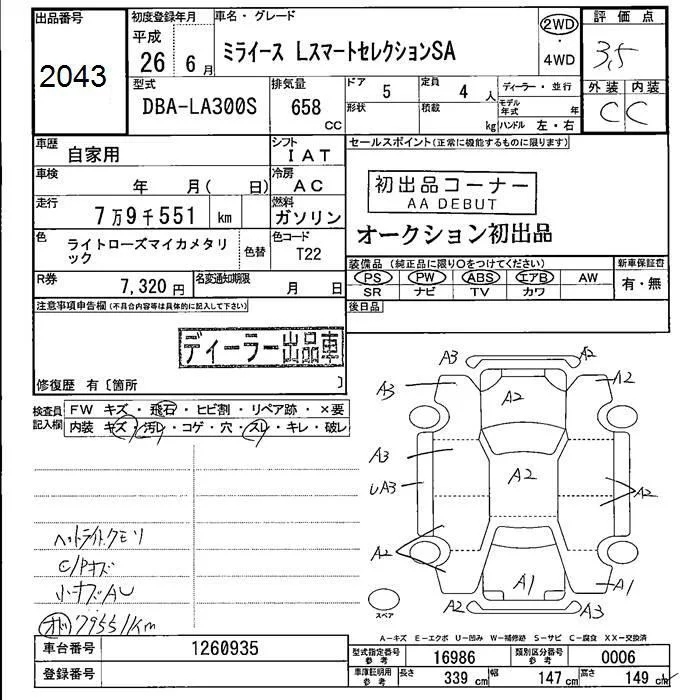 出品番号 初度登録年月 車名・グレード 2WD ・ 4WD 評価点
2043 平成 26 6月 ミライース LスマートセレクションSA 3,5
型式 排気量 ドア 5 定員 4人 ディーラー・並行 外装 内装
DBA-LA300S 658 CC 形状 積載 kg モデル年式 年 ハンドル 左・右 C C
車歴 自家用 シフト IAT セールスポイント(正常に機能するものに限ります)
車検 年 月( 日) 冷房 AC 初出品コーナー
AA DEBUT
走行 7万9千551 km 燃料 ガソリン
オークション初出品
色 ライトローズマイカメタリック 色替 色コード T22
装備品(純正品に限り○をつけてください) 新車保証書
PS PW ABS エアB AW 有・無
SR ナビ TV カワ
R券 7,320円 名変通知期限 月 日
後日品
注意事項申告欄(不具合内容等は具体的に記入して下さい)
ディーラー出品車
修復歴 有〔箇所 〕
検査員記入欄 FW キズ・飛石・ヒビ割・リペア跡・×要
内装 キズ・汚レ・コゲ・穴・スレ・キレ・破レ
A3 A2
A3 A2 A2
A3 A2
UA3 A2
A2
A1 A1
A2 A3
スペア
ヘットライトクモリ
C/Pキズ
小キズAU
オド 79551Km
A-キズ E-エクボ U-凹み W-補修跡 S-サビ C-腐食 XX-交換済
車台番号 1260935
型式指定番号 参考 16986 類別区分番号 参考 0006
登録番号
車庫証明用 参考 長さ 339cm 幅 147cm 高さ 149cm